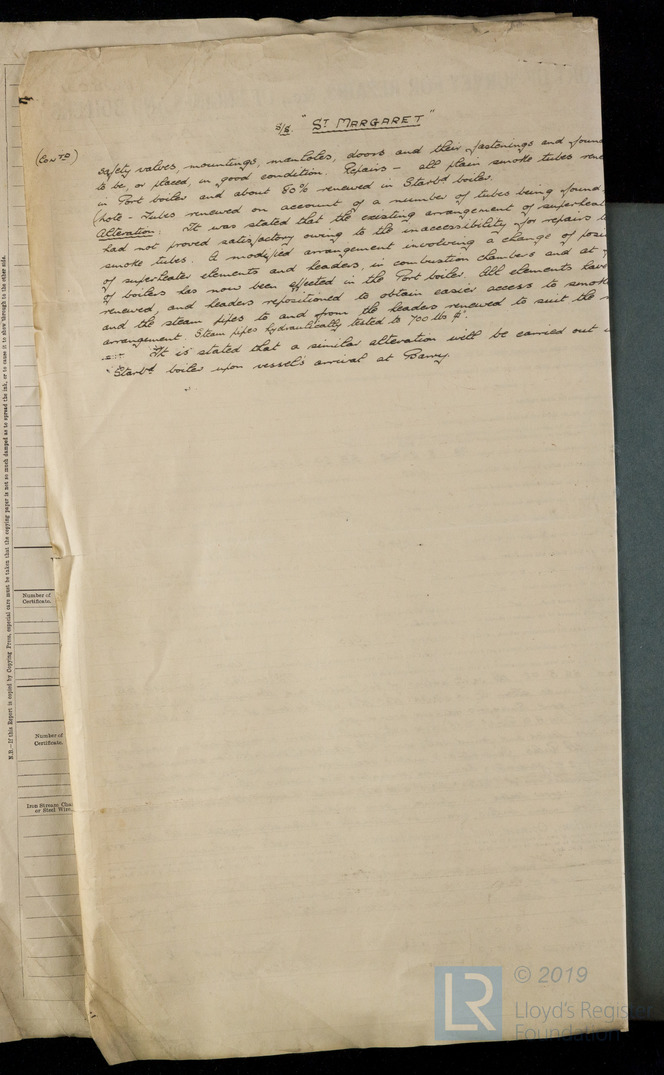 S/S. "ST MARGARET"
(CONTD)
safety valves, mountings, manholes, doors and their fastenings and found
to be, or placed, in good condition. Repairs - all plain smoke tubes rene
in Port boiler and about 80% renewed in Starbd boiler.
(Note - Tubes renewed on account of a number of tubes being found
Alteration: It was stated that the existing arrangement of superheat
had not proved satisfactory owing to the inaccessibility for repairs
smoke tubes. A modified arrangement involving a change of posi
of superheater elements and headers, in combustion chambers and at
of boilers has now been effected in the Port boiler. All elements have
renewed, and headers repositioned to obtain easier access to smoke
and the steam pipes to and from the headers renewed to suit the
arrangement. Steam pipes hydraulically tested to 700 lbs □".
It is stated that a similar alteration will be carried out
Starbd boiler upon vessel's arrival at Barry.
N.B.—If this Report is copied by Copying Press, especial care must be taken that the copying paper is not so much damped as to spread the ink, or to cause it to show through to the other side.
Number of
Certificate.
Number of
Certificate.
Iron Stream Chai
or Steel Wire
LR
© 2019
Lloyd's Register
Foundation